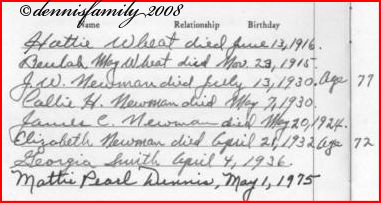 ©dennisfamily 2008
Name Relationship Birthday
Hattie Wheat died June 13, 1916.
Beulah May Wheat died Nov. 23, 1915.
J. W. Newman died July 13, 1930. Age 77
Callie H. Newman died May 7, 1930.
James C. Newman died May 20, 1924.
Elizabeth Newman died April 21, 1932 Age 72
Georgia Smith April 4, 1936.
Mattie Pearl Dennis, May 1, 1975